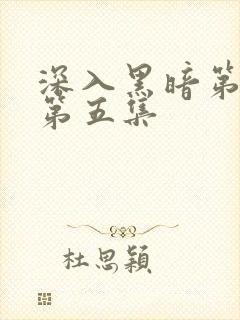 深入黑暗第
第五集
杜思颖